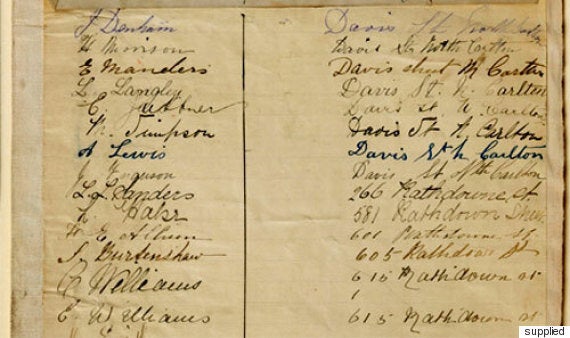 J Denham Davis St North Carlton
H Morison Davis St North Carlton
E Manders Davis street N Carlton
L. Langley Davis St. N. Carlton
C. Juttner Davis St N. Carlton
N. Simpson Davis St N. Carlton
A Lewis Davis St N Carlton
J Ferguson Davis St Nth Carlton
L. L. Sanders 266 Rathdowne St
H. 581 Rathdown Street
W E Allison 601 Rathdowne St
S. Burtenshaw 605 Rathdown St
C Williams 615 Rathdown St
E Williams 615 Rathdown St
supplied